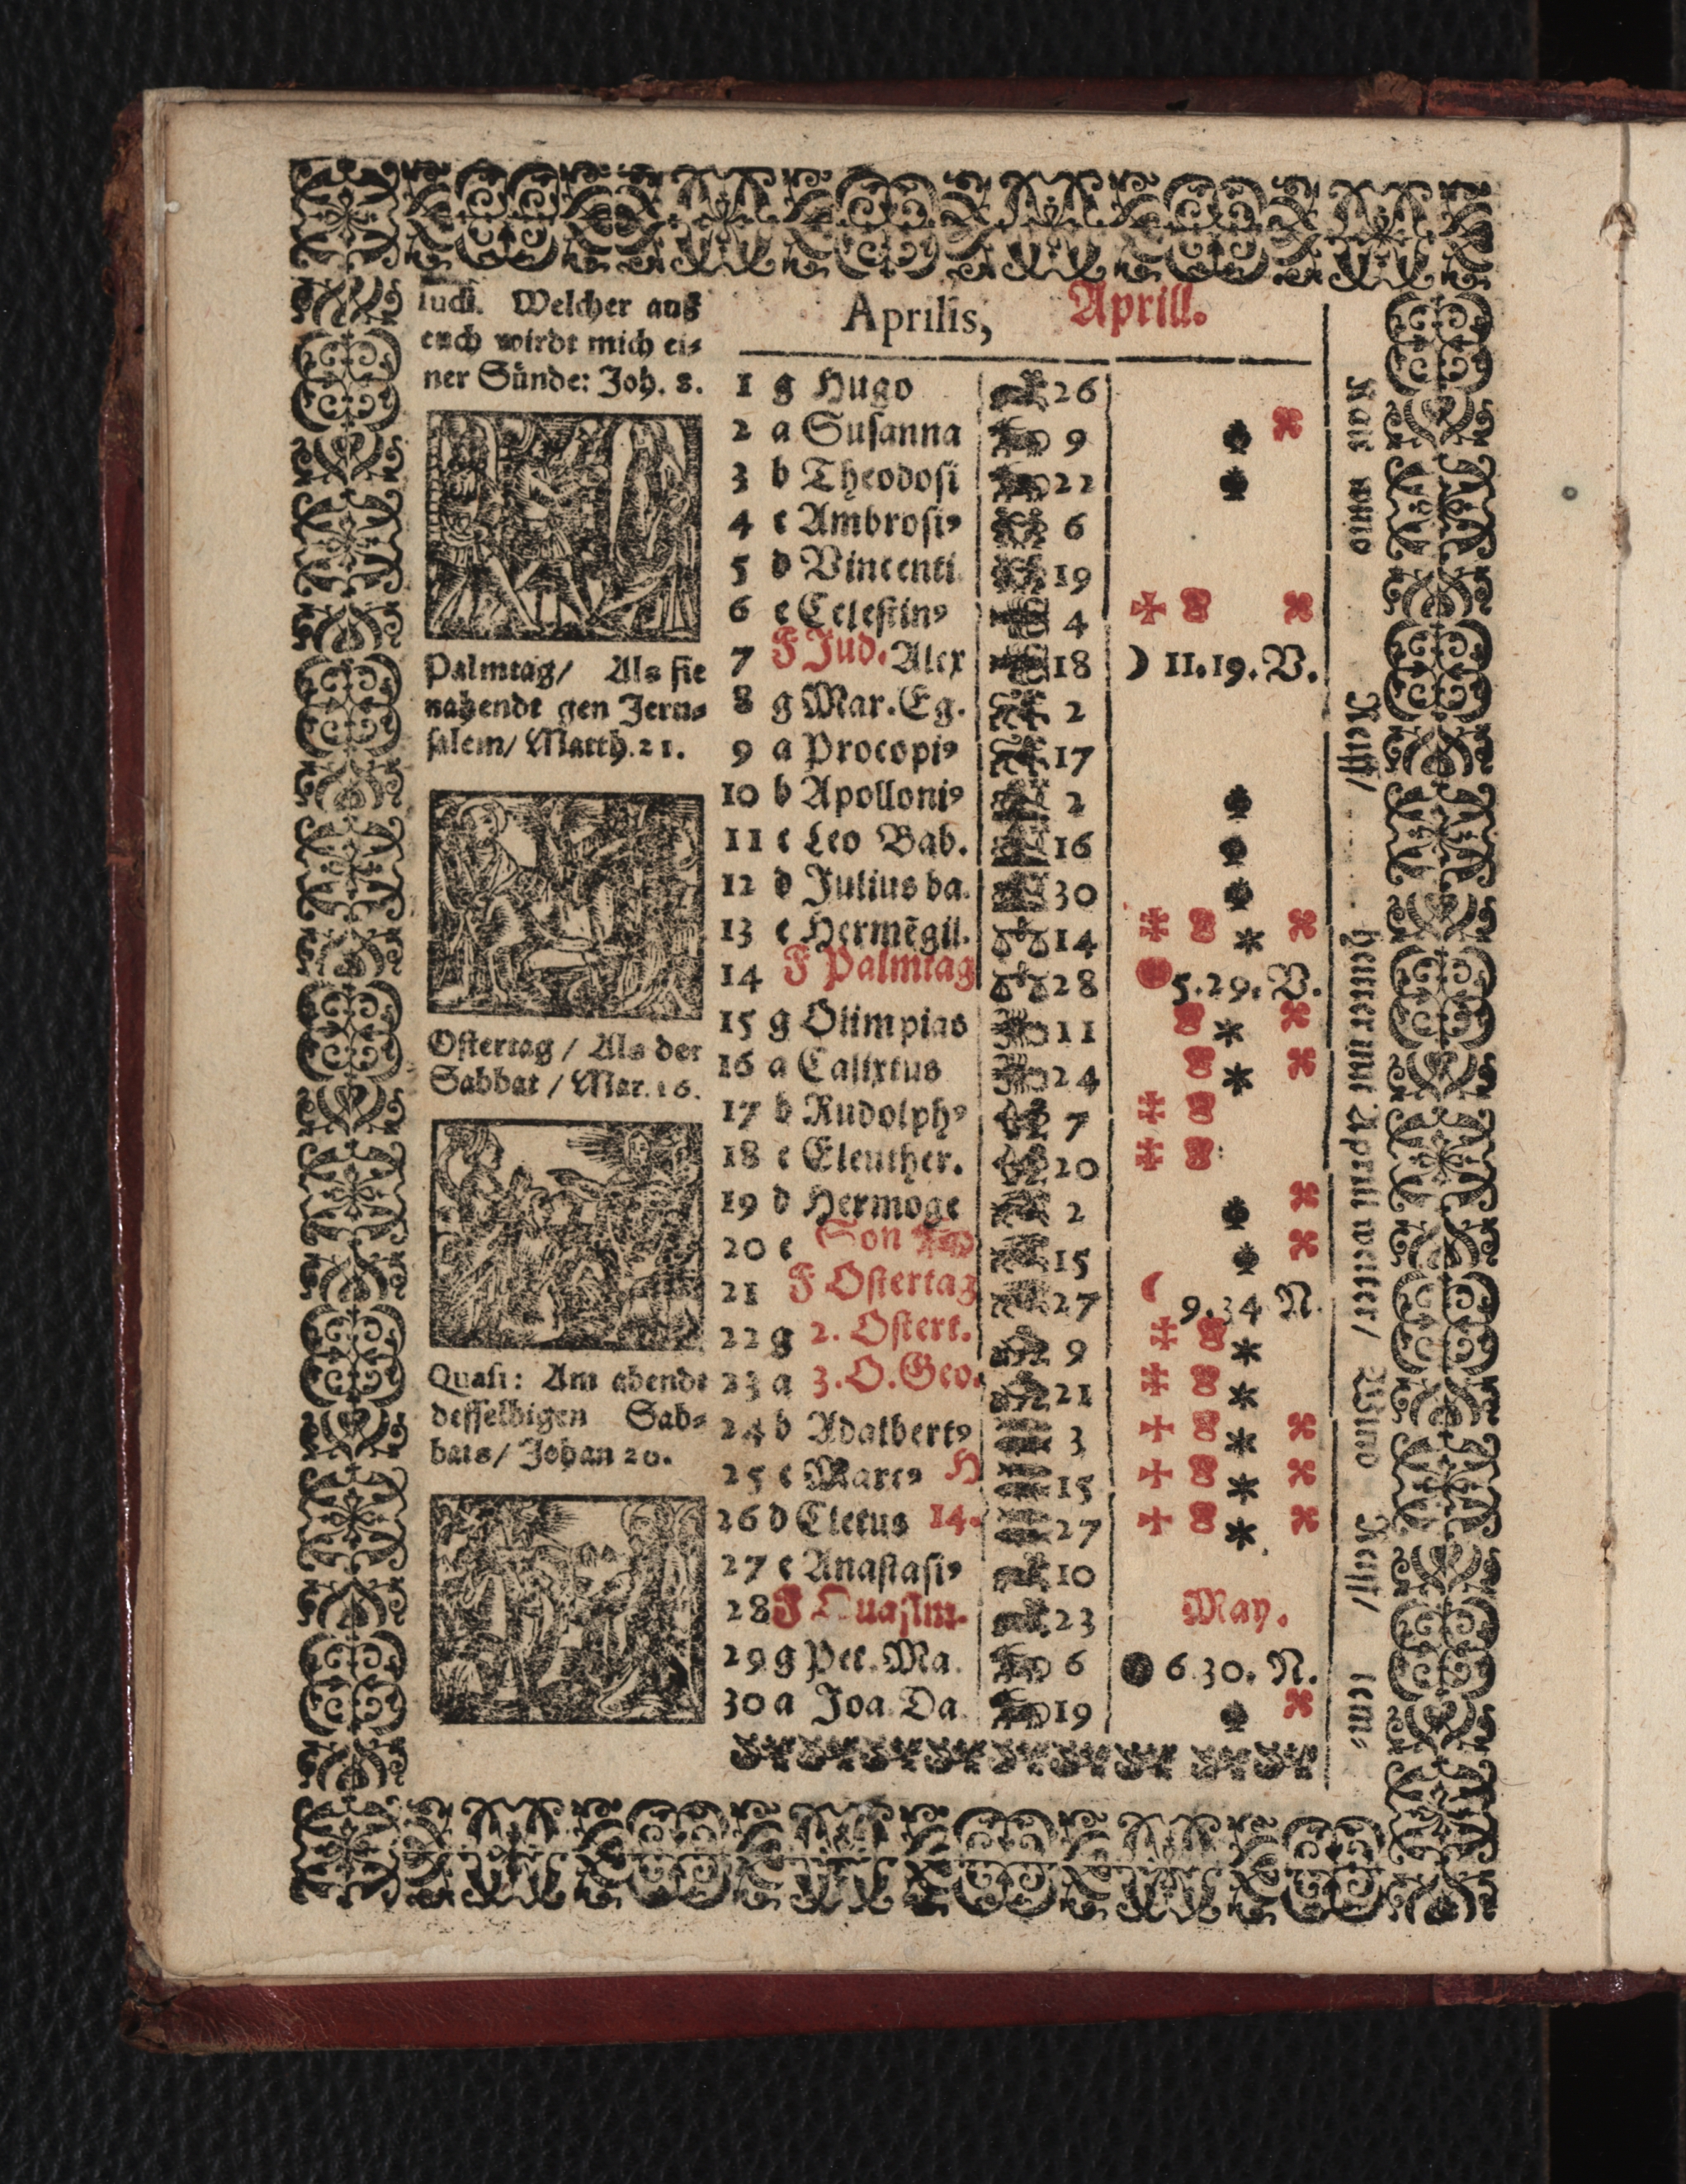 Iudi. Welcher aus
euch wirdt mich ei⸗
ner Sünde: Joh. 8.
Palmtag/ Als sie
nahendt gen Jeru⸗
salem/ Matth. 21.
Ostertag / Als der
Sabbat / Mar. 16.
Quasi: Am abendt
desselbigen Sab⸗
bats/ Johan 20.
Aprilis, Aprill.
1 g Hugo 26
2 a Susanna 9
3 b Theodosi 22
4 c Ambrosi⁹ 6
5 d Vincenti. 19
6 e Celestin⁹ 4
7 F Jud. Alex 18 ☽ 11.19. V.
8 g Mar. Eg. 2
9 a Procopi⁹ 17
10 b Apolloni⁹ 2
11 c Leo Bab. 16
12 d Julius ba. 30
13 e Hermēgil. 14
14 F Palmtag 28 5.29. V.
15 g Olimpias 11
16 a Calixtus 24
17 b Rudolph⁹ 7
18 c Eleuther. 20
19 d Hermoge 2
20 e Son 15
21 F Ostertag 27 ☾ 9.34 N.
22 g 2. Ostert. 9
23 a 3. O. Geo. 21
24 b Adalbert⁹ 3
25 c Marc⁹ H 15
26 d Cletus 14. 27
27 e Anastasi⁹ 10
28 F Quasim. 23 May.
29 g Pet. Ma. 6 ● 6.30. N.
30 a Joa. Da. 19
Kalt unnd Reiff/ heuter mit Aprill weter/ Wind Reiff/ tem⸗